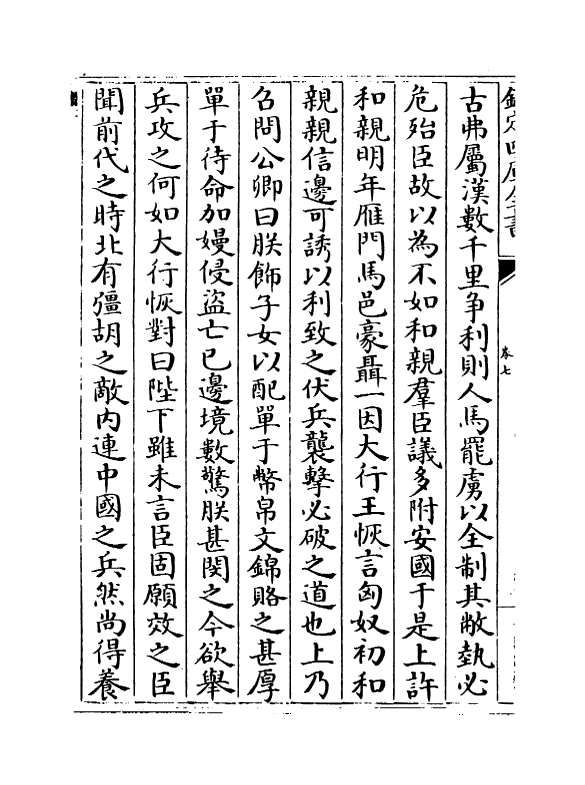 欽定四庫全書
卷七
古弗屬漢數千里争利則人馬罷虜以全制其敝埶必
危殆臣故以為不如和親羣臣議多附安國于是上許
和親明年雁門馬邑豪聶一因大行王恢言匈奴初和
親親信邊可誘以利致之伏兵襲擊必破之道也上乃
召問公卿曰朕飾子女以配單于幣帛文錦賂之甚厚
單于待命加嫚侵盜亡已邊境數驚朕甚閔之今欲舉
兵攻之何如大行恢對曰陛下雖未言臣固願效之臣
聞前代之時北有彊胡之敵内連中國之兵然尚得養